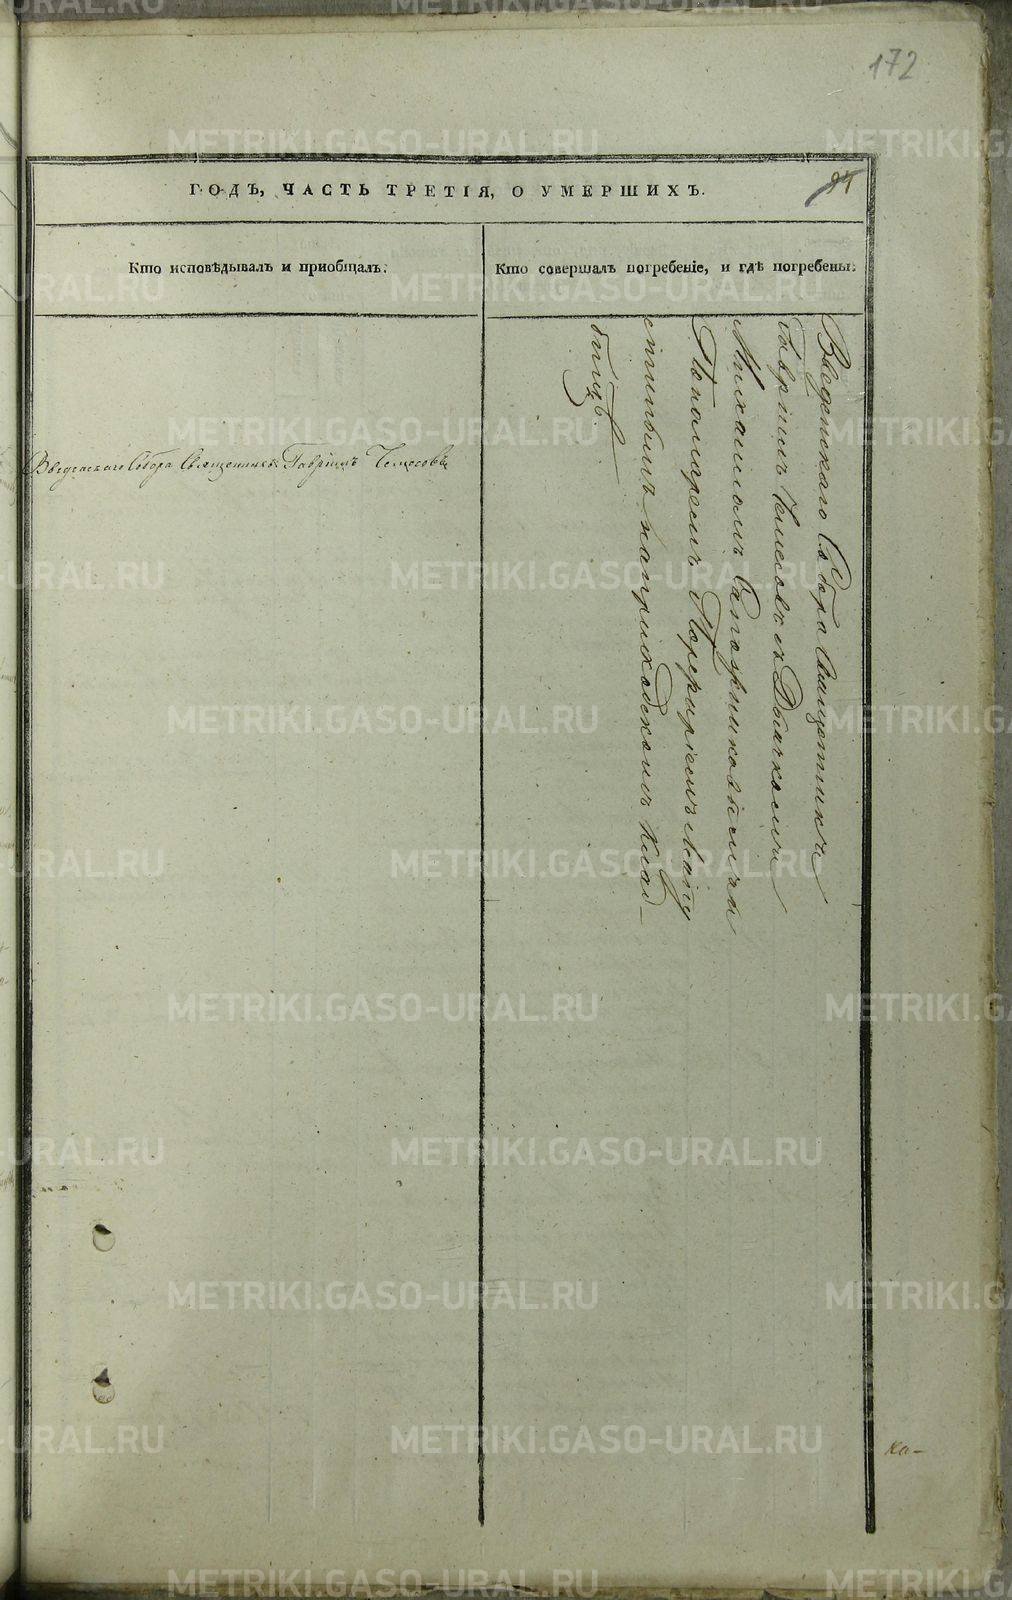 172
94
ГОДЪ, ЧАСТЬ ТРЕТІЯ, О УМЕРШИХЪ.
Кто исповѣдывалъ и приобщалъ.
Кто совершалъ погребеніе, и гдѣ погребены.
Введенскаго Собора Священникъ Гавріилъ Чемесовъ
Введенскаго Собора Священникъ
Гавріилъ Чемесовъ съ Дьячкомъ
Михаиломъ Сапожниковымъ и
Пономаремъ Порфиріемъ
на приходскомъ клад-
бищѣ
ка-
METRIKI.GASO-URAL.RU